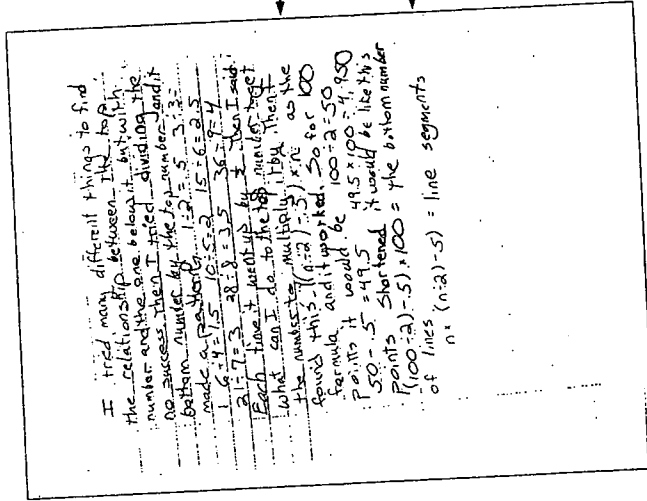 I tried many different things to find
the relationship between the top
number and the one below it but with
no success. Then I tried dividing the
bottom number by the top number and it
made a pattern. 1÷2=.5 3÷3=
1 6÷4=1.5 10÷5=2 15÷6=2.5
21÷7=3 28÷8=3.5 36÷9=4
Each time it went up by ½. Then I said
what can I do to the top number to get
the number to multiply it by. Then I
found this ((n÷2)-.5)×n as the
formula and it worked. So for 100
points it would be 100÷2=50
50-.5=49.5 49.5×100=4,950
points Shortened it would be like this
(100÷2)-.5)×100= the bottom number
of lines
n×(n÷2)-5) = line segments